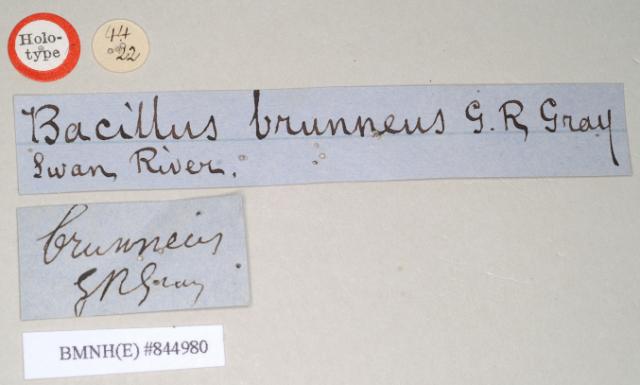 Holo-
type
44
22
Bacillus brunneus G. R. Gray
Swan River.
brunneus
G R Gray
BMNH(E) #844980